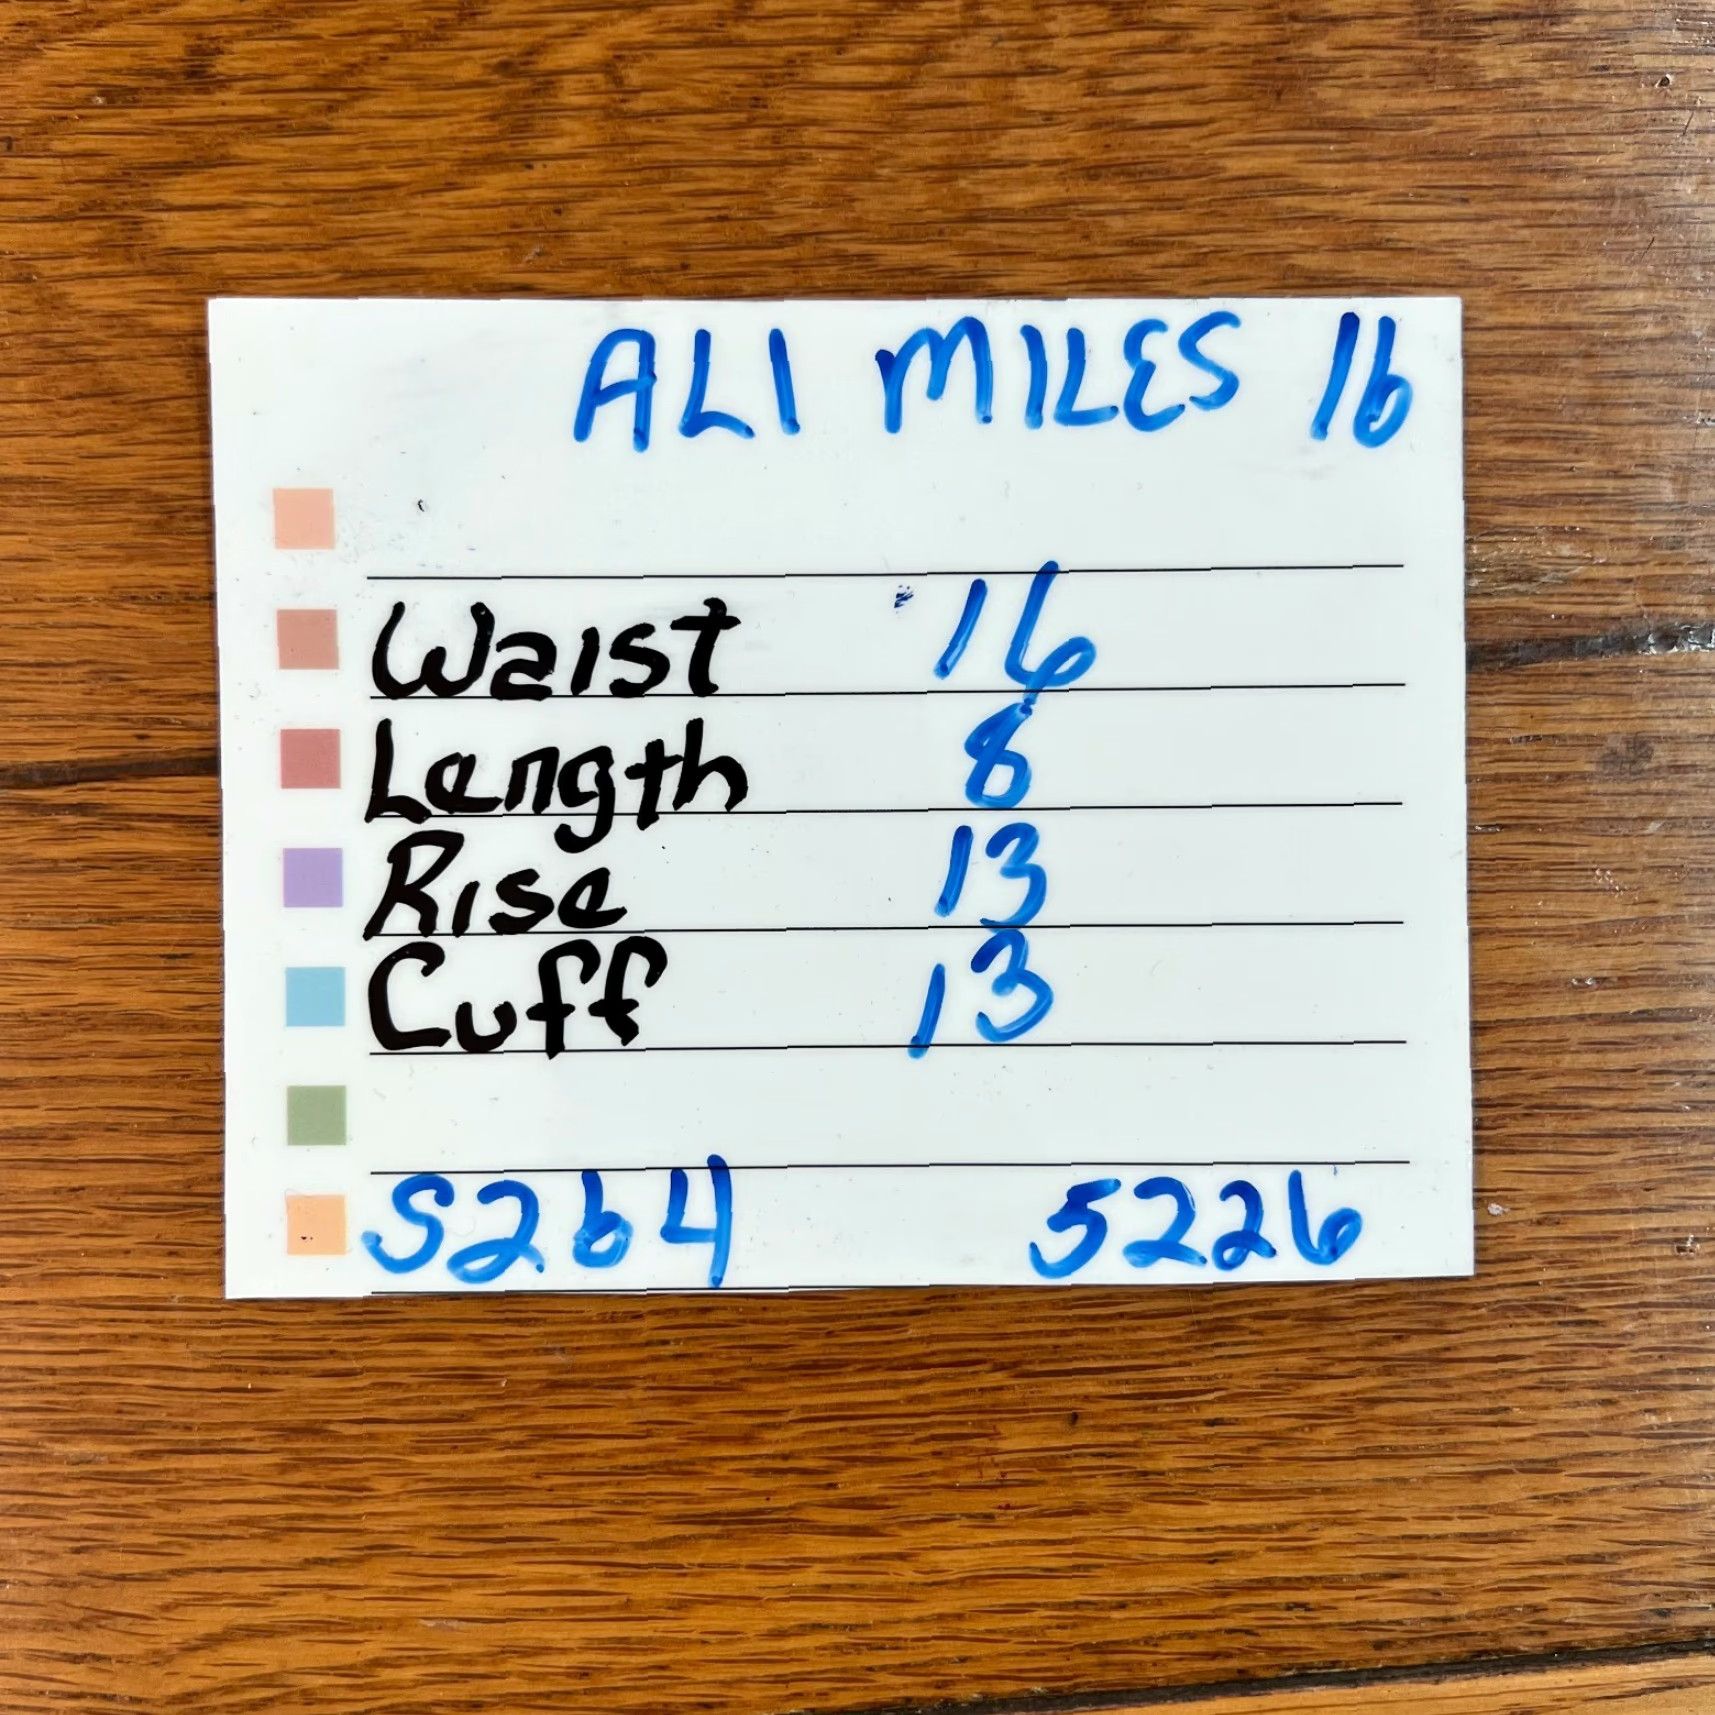 ALI MILES 16
Waist 16
Length 8
Rise 13
Cuff 13
S264 5226